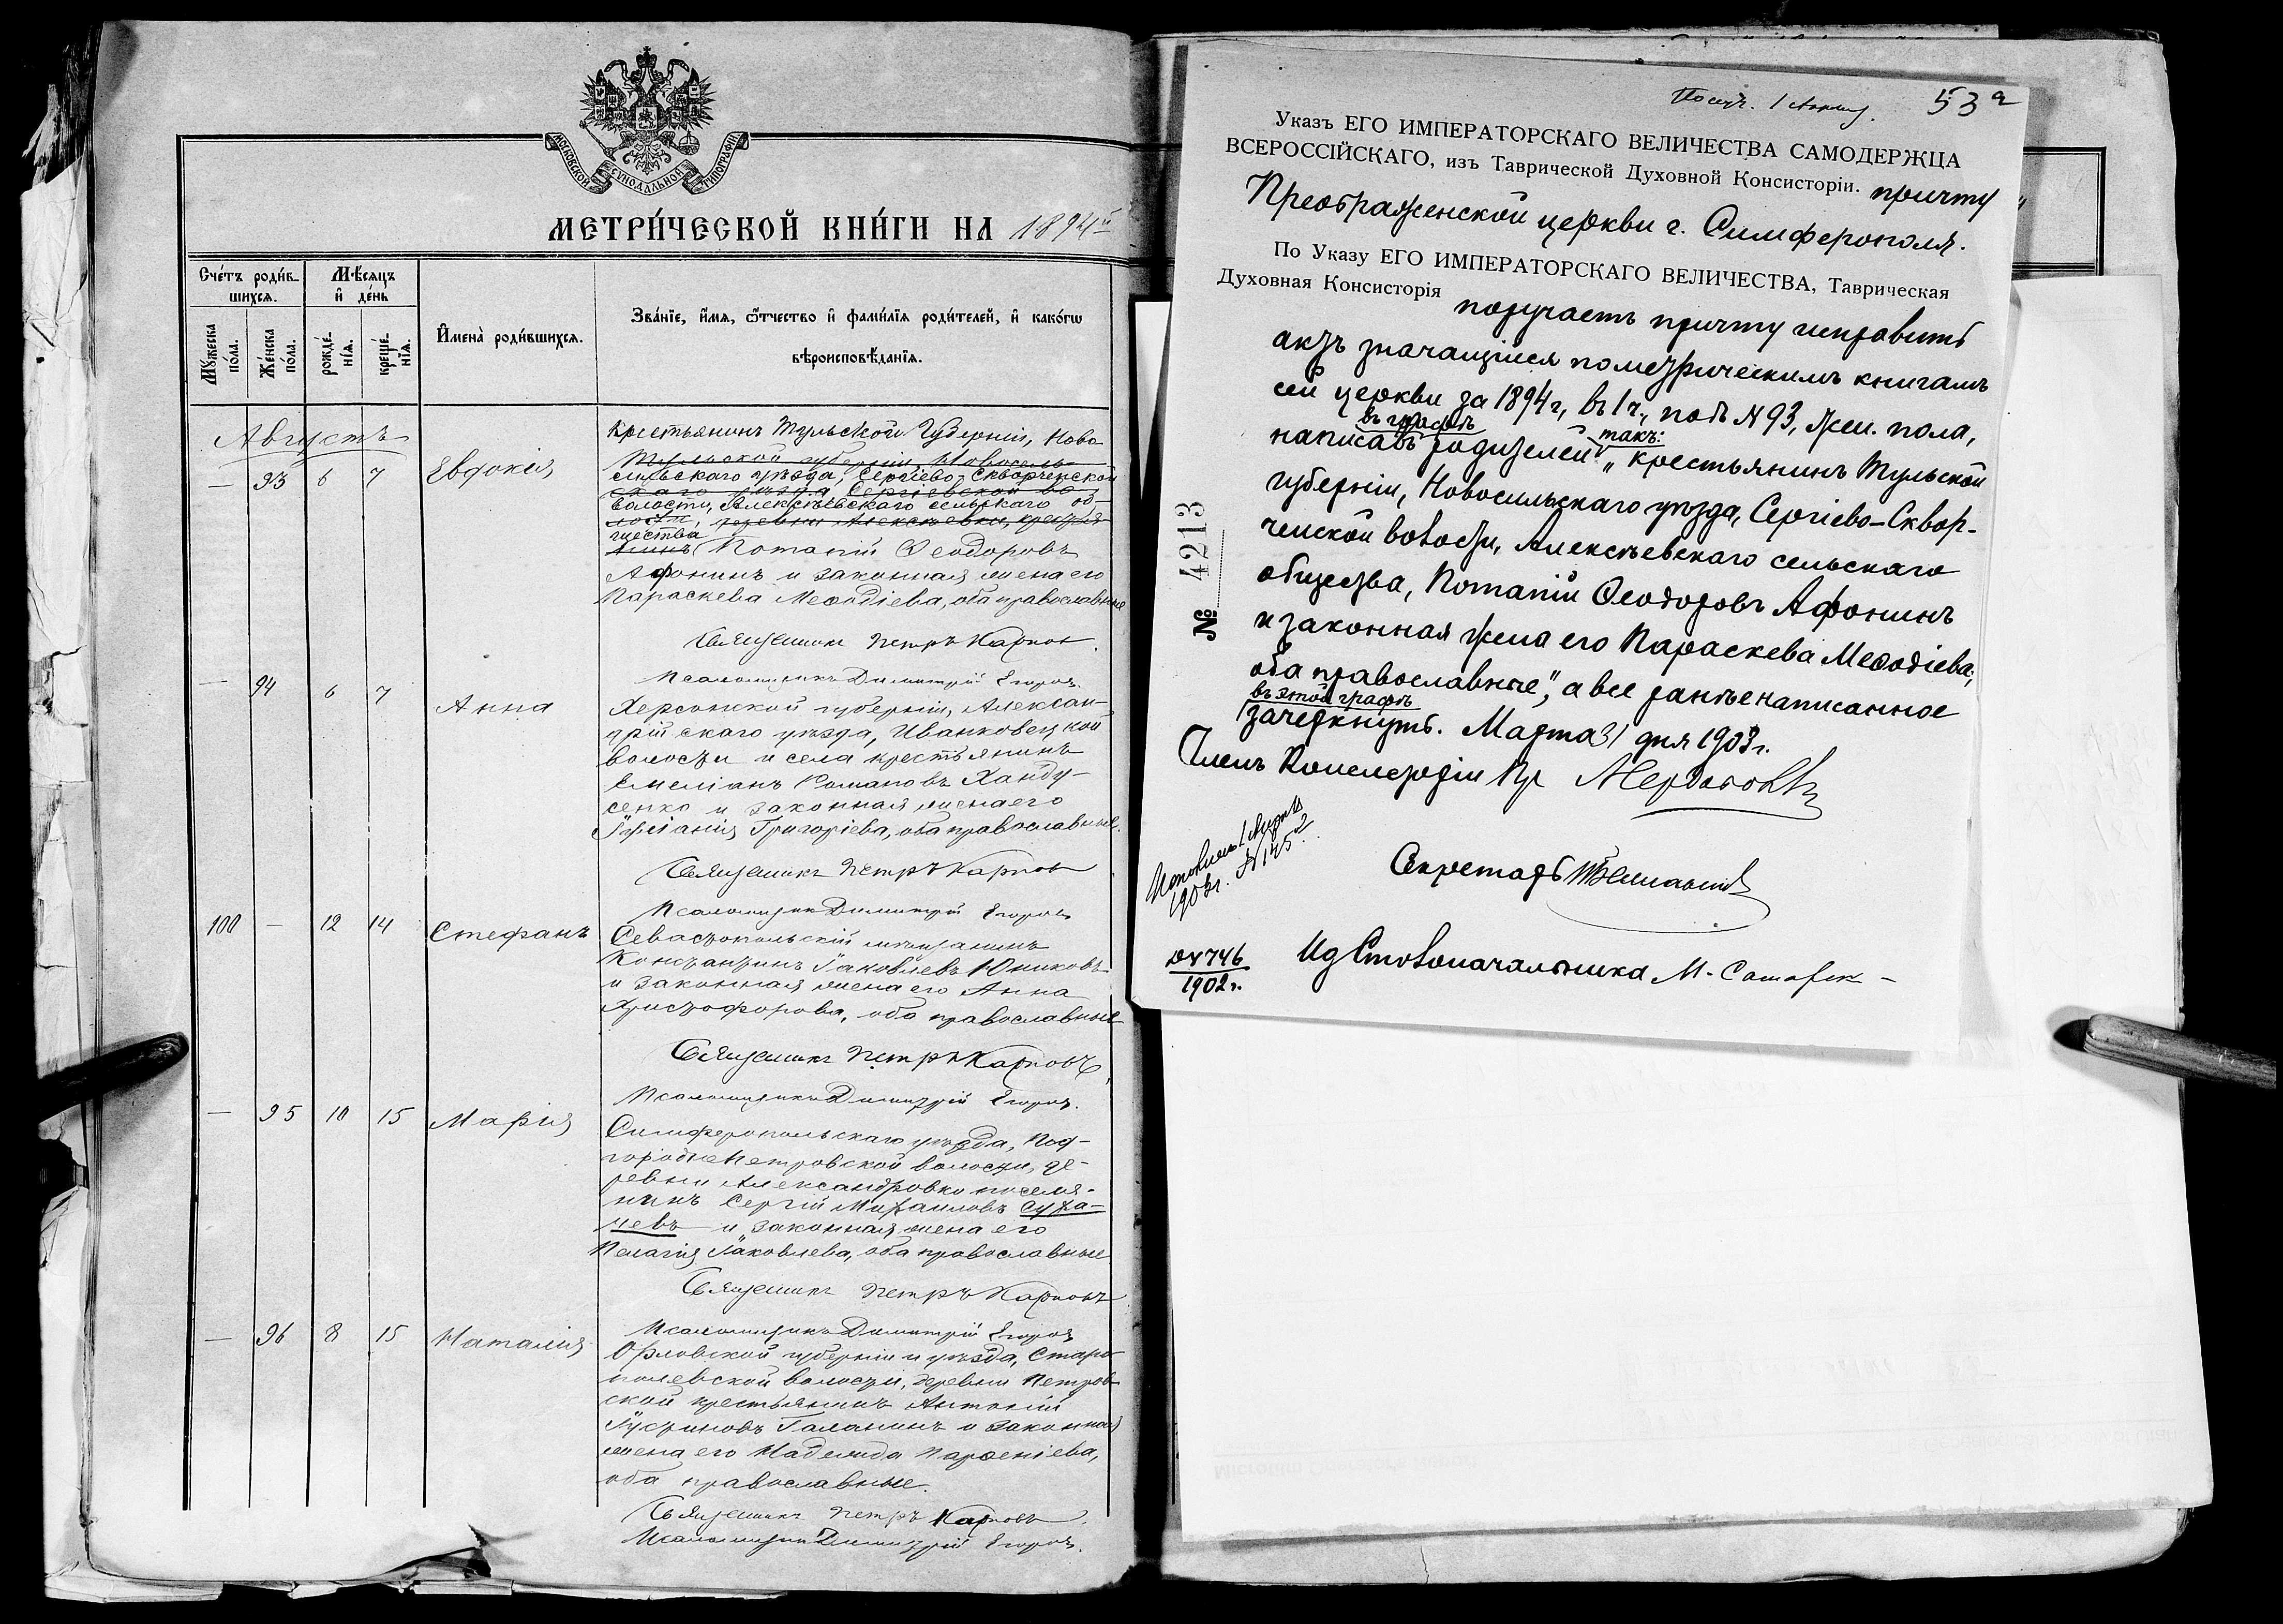 МОСКОВСКОЙ СѴНОДАЛЬНОЙ ТИПОГРАФІИ
МЕТРИ́ЧЕСКОЙ КНИ́ГИ НА 1894й
Сче́тъ роди́вшихсѧ.
Мѣ́сѧцъ и҆ де́нь
И҆мена̀ роди́вшихсѧ.
Зва́нїе, и҆́мѧ, ѻ҆́тчество и҆ фами́лїѧ роди́телей, и҆ како́гѡ
вѣроисповѣ́данїѧ.
Мꙋ́жеска по́ла.
Же́нска по́ла.
рожде́нїѧ.
креще́нїѧ.
Августъ
— 93 6 7 Евдокія
Крестьянинъ Тульской Губерніи, Ново-
Тульской губерніи, Новосиль-
сильскаго уѣзда, Сергіево-Скворченской
скаго уѣзда Сергіевской во-
волости, Алексѣевскаго сельскаго об-
лости, деревни Алексѣевки, кресть-
щества
янинъ Потапій Ѳеодоровъ
Афонинъ и законная жена его
Параскева Меѳодіева, оба православные
Священникъ Петръ Карпов
Псаломщикъ Димитрій Егоров
— 94 6 7 Анна
Херсонской губерніи, Алексан-
дрійскаго уѣзда, Иванковецкой
волости и села крестьянинъ
Емеліанъ Романовъ Ханду-
сенко и законная жена его
Іуліанія Григоріева, оба православные.
Священникъ Петръ Карпов
Псаломщикъ Димитрій Егоров
100 — 12 14 Стефанъ
Севастопольскій мѣщанинъ
Константинъ Іаковлевъ Юниковъ
и законная жена его Анна
Христофорова, оба православные
Священникъ Петръ Карповъ
Псаломщикъ Димитрій Егоров.
— 95 10 15 Марія
Симферопольскаго уѣзда, Под-
городне Петровской волости, де-
ревни Александровки поселя-
нинъ Сергій Михаиловъ Суха-
чевъ и законная жена его
Пелагія Іаковлева, оба православные
Священникъ Петръ Карповъ
Псаломщикъ Димитрій Егоров
— 96 8 15 Наталія
Орловской губерніи и уѣзда, Старо-
полевской волости, деревни Петров-
ской крестьянинъ Антоній
Іустиновъ Галанинъ и законная
жена его Надежда Парѳеніева,
оба православные.
Священникъ Петръ Карповъ
Псаломщикъ Димитрій Егоров.
Получ. 1 Апрѣля. 53а
Указъ ЕГО ИМПЕРАТОРСКАГО ВЕЛИЧЕСТВА САМОДЕРЖЦА
ВСЕРОССІЙСКАГО, изъ Таврической Духовной Консисторіи. причту
Преображенской церкви г. Симферополя.
По Указу ЕГО ИМПЕРАТОРСКАГО ВЕЛИЧЕСТВА, Таврическая
Духовная Консисторія поручаетъ причту исправить
актъ значащійся по метрическимъ книгамъ
сей церкви за 1894 г, въ 1 ч., подъ № 93, жен. пола,
въ графѣ такъ:
написавъ родителей „крестьянинъ Тульской
губерніи, Новосильскаго уѣзда, Сергіево-Сквор-
ченской волости, Алексѣевскаго сельскаго
общества, Потапій Ѳеодоровъ Афонинъ
и законная жена его Параскева Меѳодіева,
оба православные", а все ранѣе написанное
въ этой графѣ
зачеркнуть. Марта 31 дня 1903 г.
Членъ Консисторіи Пр
Секретарь
Ид Столоначальника М.
№ 4213
Исполнен 1 Апрѣля
1903 г. № 145.
Д № 746
1902 г.